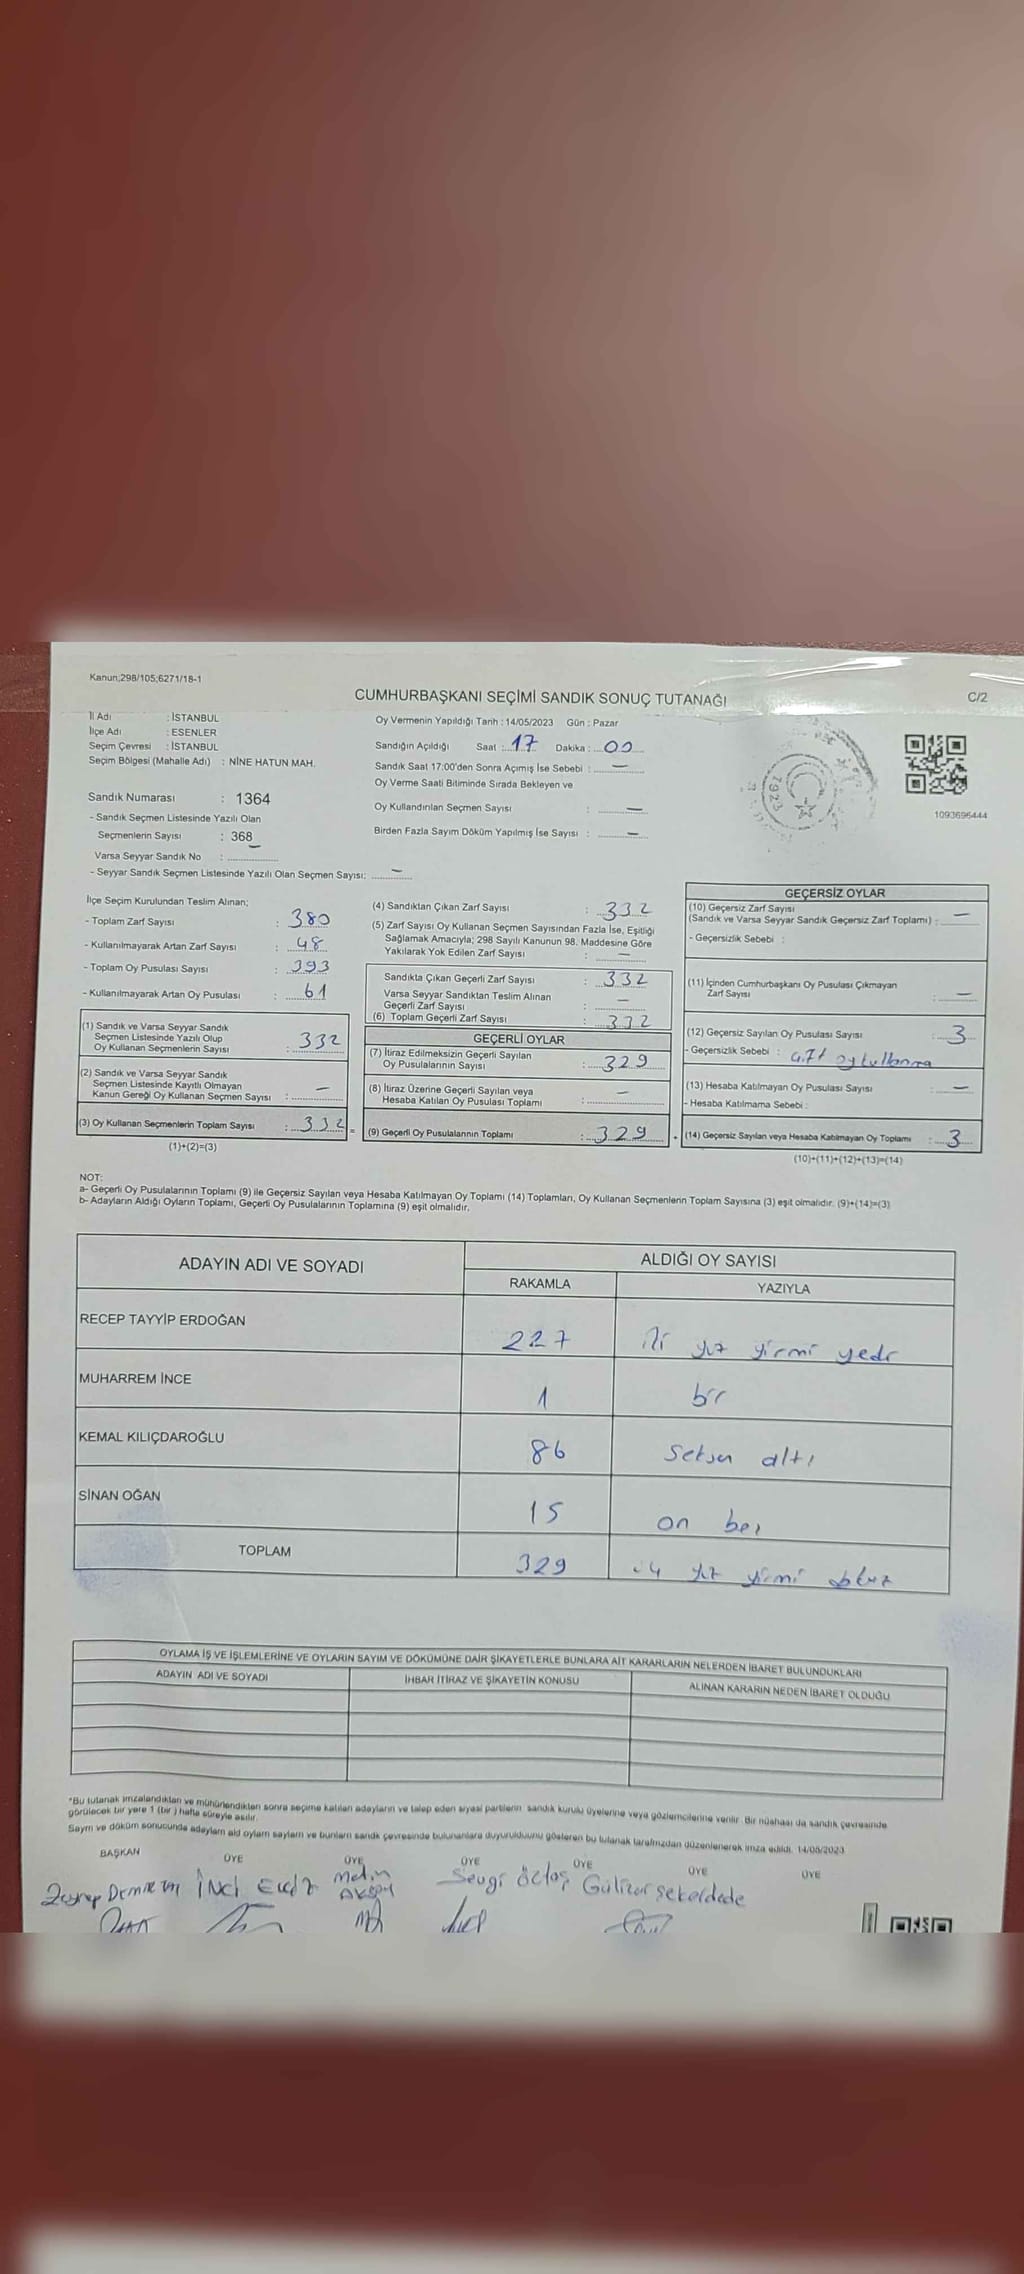 Kanun;298/105;6271/18-1
CUMHURBAŞKANI SEÇİMİ SANDIK SONUÇ TUTANAĞI
C/2
İl Adı : İSTANBUL
İlçe Adı : ESENLER
Seçim Çevresi : İSTANBUL
Seçim Bölgesi (Mahalle Adı) : NİNE HATUN MAH.
Sandık Numarası : 1364
- Sandık Seçmen Listesinde Yazılı Olan
Seçmenlerin Sayısı : 368
Varsa Seyyar Sandık No : —
- Seyyar Sandık Seçmen Listesinde Yazılı Olan Seçmen Sayısı: —
Oy Vermenin Yapıldığı Tarih : 14/05/2023 Gün : Pazar
Sandığın Açıldığı Saat : 17 Dakika : 00
Sandık Saat 17:00'den Sonra Açımış İse Sebebi : —
Oy Verme Saati Bitiminde Sırada Bekleyen ve
Oy Kullandırılan Seçmen Sayısı : —
Birden Fazla Sayım Döküm Yapılmış İse Sayısı : —
1093696444
İlçe Seçim Kurulundan Teslim Alınan;
- Toplam Zarf Sayısı : 380
- Kullanılmayarak Artan Zarf Sayısı : 48
- Toplam Oy Pusulası Sayısı : 393
- Kullanılmayarak Artan Oy Pusulası : 61
(1) Sandık ve Varsa Seyyar Sandık
Seçmen Listesinde Yazılı Olup
Oy Kullanan Seçmenlerin Sayısı : 332
(2) Sandık ve Varsa Seyyar Sandık
Seçmen Listesinde Kayıtlı Olmayan
Kanun Gereği Oy Kullanan Seçmen Sayısı : —
(3) Oy Kullanan Seçmenlerin Toplam Sayısı : 332 =
(1)+(2)=(3)
(4) Sandıktan Çıkan Zarf Sayısı : 332
(5) Zarf Sayısı Oy Kullanan Seçmen Sayısından Fazla İse, Eşitliği
Sağlamak Amacıyla; 298 Sayılı Kanunun 98. Maddesine Göre
Yakılarak Yok Edilen Zarf Sayısı : —
Sandıkta Çıkan Geçerli Zarf Sayısı : 332
Varsa Seyyar Sandıktan Teslim Alınan
Geçerli Zarf Sayısı : —
(6) Toplam Geçerli Zarf Sayısı : 332
GEÇERLİ OYLAR
(7) İtiraz Edilmeksizin Geçerli Sayılan
Oy Pusulalarının Sayısı : 329
(8) İtiraz Üzerine Geçerli Sayılan veya
Hesaba Katılan Oy Pusulası Toplamı : —
(9) Geçerli Oy Pusulalarının Toplamı : 329 +
GEÇERSİZ OYLAR
(10) Geçersiz Zarf Sayısı
(Sandık ve Varsa Seyyar Sandık Geçersiz Zarf Toplamı) : —
- Geçersizlik Sebebi :
(11) İçinden Cumhurbaşkanı Oy Pusulası Çıkmayan
Zarf Sayısı : —
(12) Geçersiz Sayılan Oy Pusulası Sayısı : 3
- Geçersizlik Sebebi : oy kullanma
(13) Hesaba Katılmayan Oy Pusulası Sayısı : —
- Hesaba Katılmama Sebebi :
(14) Geçersiz Sayılan veya Hesaba Katılmayan Oy Toplamı : 3
(10)+(11)+(12)+(13)=(14)
NOT:
a- Geçerli Oy Pusulalarının Toplamı (9) ile Geçersiz Sayılan veya Hesaba Katılmayan Oy Toplamı (14) Toplamları, Oy Kullanan Seçmenlerin Toplam Sayısına (3) eşit olmalıdır. (9)+(14)=(3)
b- Adayların Aldığı Oyların Toplamı, Geçerli Oy Pusulalarının Toplamına (9) eşit olmalıdır.
ADAYIN ADI VE SOYADI ALDIĞI OY SAYISI
RAKAMLA YAZIYLA
RECEP TAYYİP ERDOĞAN 227 iki yüz yirmi yedi
MUHARREM İNCE 1 bir
KEMAL KILIÇDAROĞLU 86 seksen altı
SİNAN OĞAN 15 on beş
TOPLAM 329 üç yüz yirmi dokuz
OYLAMA İŞ VE İŞLEMLERİNE VE OYLARIN SAYIM VE DÖKÜMÜNE DAİR ŞİKAYETLERLE BUNLARA AİT KARARLARIN NELERDEN İBARET BULUNDUKLARI
ADAYIN ADI VE SOYADI İHBAR İTİRAZ VE ŞİKAYETİN KONUSU ALINAN KARARIN NEDEN İBARET OLDUĞU
*Bu tutanak imzalandıktan ve mühürlendikten sonra seçime katılan adayların ve talep eden siyasi partilerin sandık kurulu üyelerine veya gözlemcilerine verilir. Bir nüshası da sandık çevresinde
görülecek bir yere 1 (bir ) hafta süreyle asılır.
Sayım ve döküm sonucunda adayların aldı oyların sayıları ve bunların sandık çevresinde bulunanlara duyurulduunu gösteren bu tutanak tarafımızdan düzenlenerek imza edildi. 14/05/2023
BAŞKAN ÜYE ÜYE ÜYE ÜYE ÜYE ÜYE
Zeynep İNCİ Metin Sevgi Öztaş Gülizar Şekerdede